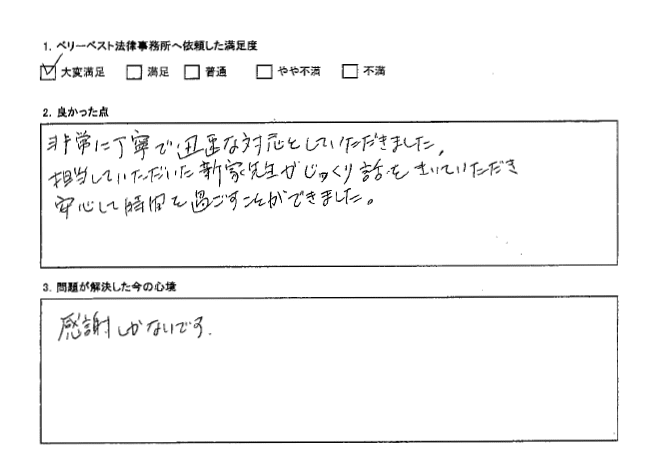 1. ベリーベスト法律事務所へ依頼した満足度
大変満足 満足 普通 やや不満 不満
2. 良かった点
非常に丁寧で迅速な対応をしていただきました。
担当していただいた新家先生がじっくり話をきいていただき
安心して時間を過ごすことができました。
3. 問題が解決した今の心境
感謝しかないです.